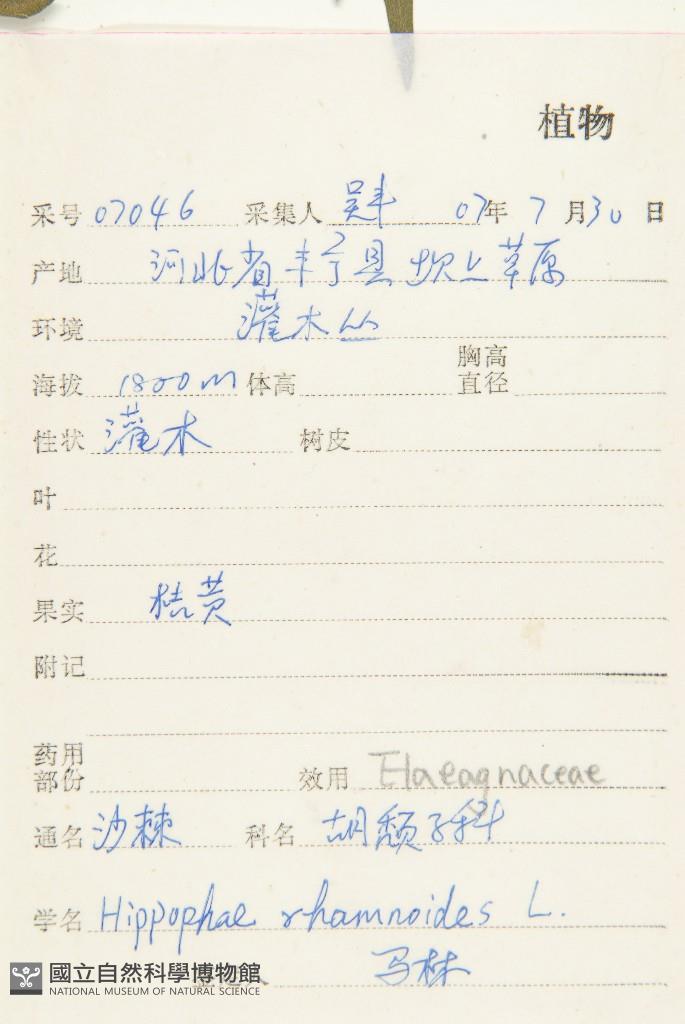 植物
采号 07046 采集人 吴丰 07年 7 月30 日
产地 河北省丰宁县坝上草原
环境 灌木丛
海拔 1800m 体高 胸高直径
性状 灌木 树皮
叶
花
果实 桔黄
附记
药用部份 效用 Elaeagnaceae
通名 沙棘 科名 胡颓子科
学名 Hippophae rhamnoides L.
马林
國立自然科學博物館
NATIONAL MUSEUM OF NATURAL SCIENCE